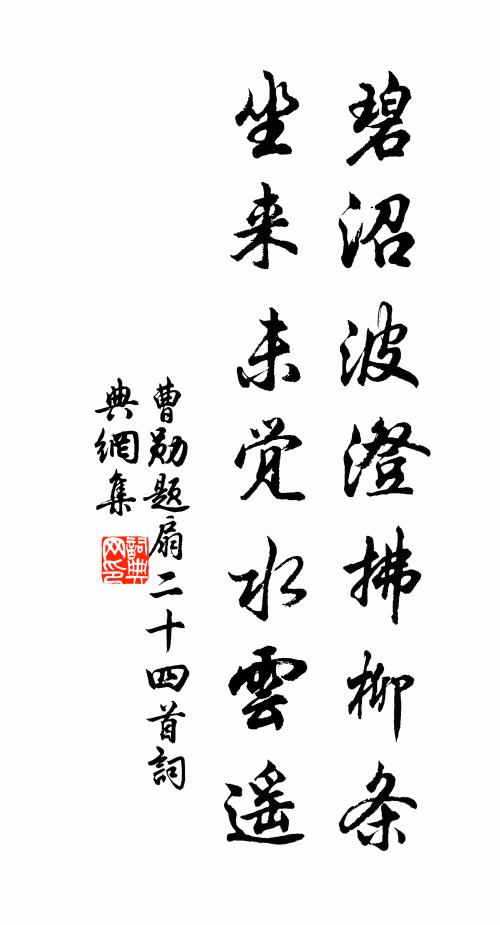 碧沼波澄拂柳条
坐来未觉水雲遥
曹勛题扇二十四首詞
典網集
詞典
网印